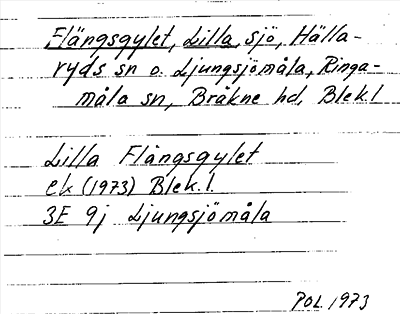 Flängsgylet, Lilla, sjö, Hälla-
ryds sn o. Ljungsjömåla, Ringa-
måla sn, Bräkne hd, Blek.l
Lilla Flångsgylet
ek (1973) Blek.l.
3E 9j Ljungsjömåla
POL 1973